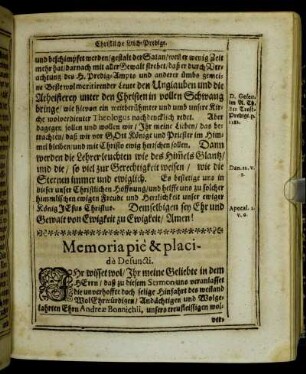 Christliche Leich-Predigt.
und beschimpffet werden/gestalt der Satan/weil er wenig Zeit
mehr hat/darnach mit aller Gewalt strebet/daß er durch Ver-
nichtung des H. Predig-Ampts und anderer ümbs gemeine
Beste wol meritirender Leute den Unglauben und die
Atheisterey unter den Christen in vollen Schwang
bringe/wie hievon ein weitberühmter und umb unsre Kir-
che wolverdienter Theologus nachdencklich redet. Aber
dagegen sollen und wollen wir/Ihr meine Lieben/das be-
trachten/daß wir vor GOtt Könige und Priester im Him-
mel bleiben/und mit Christo ewig herrschen sollen. Dann
werden die Lehrer leuchten wie des Himmels Glantz/
und die/so viel zur Gerechtigkeit weisen/wie die
Sternen immer und ewiglich. Es befestige uns in
dieser unser Christlichen Hoffnung/und helffe uns zu solcher
himmlischen ewigen Freude und Herrlichkeit unser ewiger
König JEsus Christus. Demselbigen sey Ehr und
Gewalt von Ewigkeit zu Ewigkeit/Amen!
im
Dan. 12. v.
3.
Apocal. 1.
v. 6.
Memoria piè & placi-
dè Defuncti.
HErrn/daß zu diesem Sermon uns veranlasset
die unverhoffte doch selige Hinfahrt des weiland
WolEhrwürdigen/Andächtigen und Wolge-
lahrten Ehrn Andreæ Bonnichii, unsers treufleissigen wol-